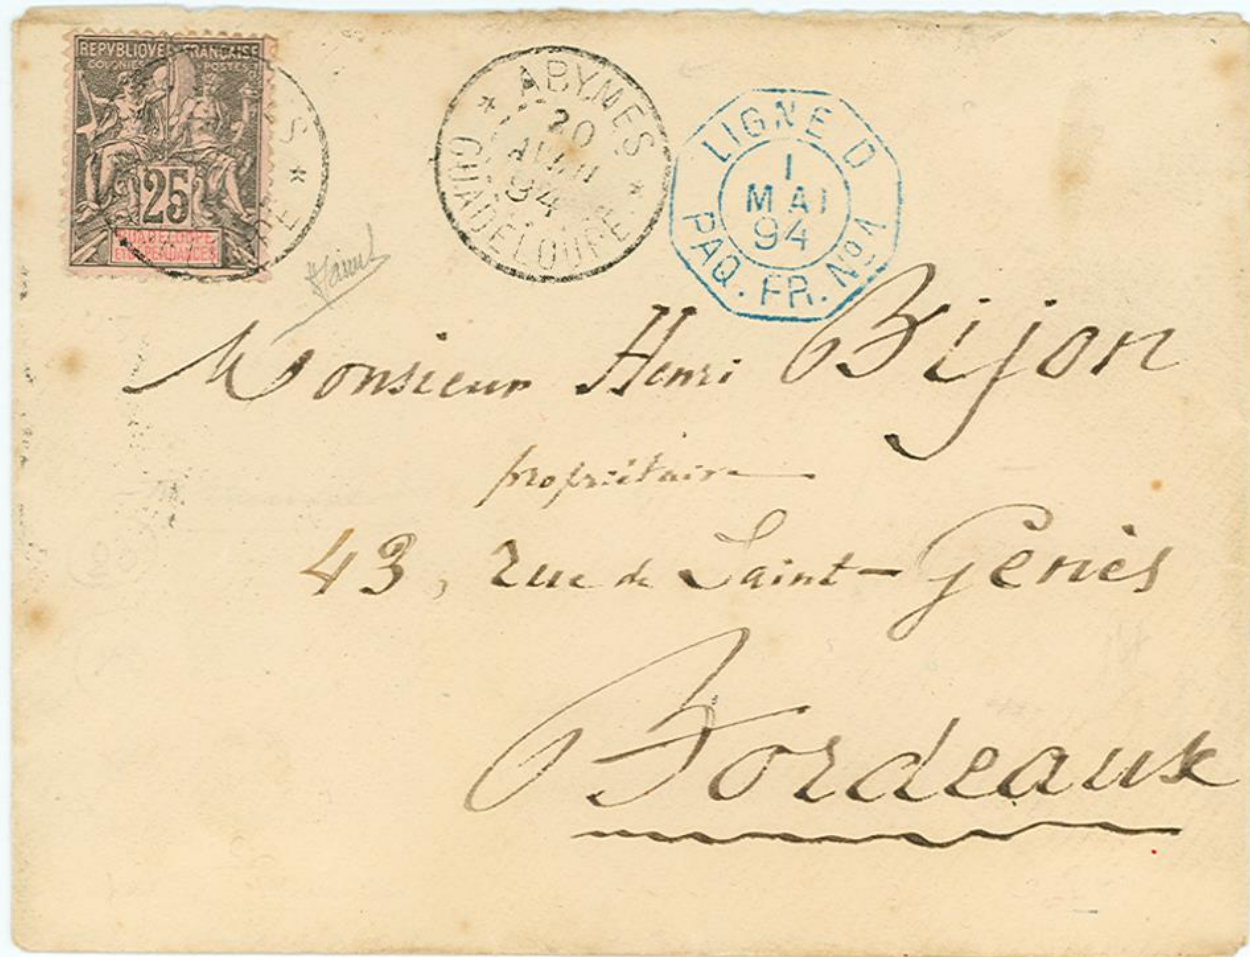 REPVBLIQVE FRANÇAISE
COLONIES POSTES
25
GUADELOUPE
ET DÉPENDANCES
* ABYMES *
20
AVRIL
94
GUADELOUPE
LIGNE D
1
MAI
94
PAQ. FR. No 1
Monsieur Henri Bijon
propriétaire
43, rue de Saint-Geniès
Bordeaux